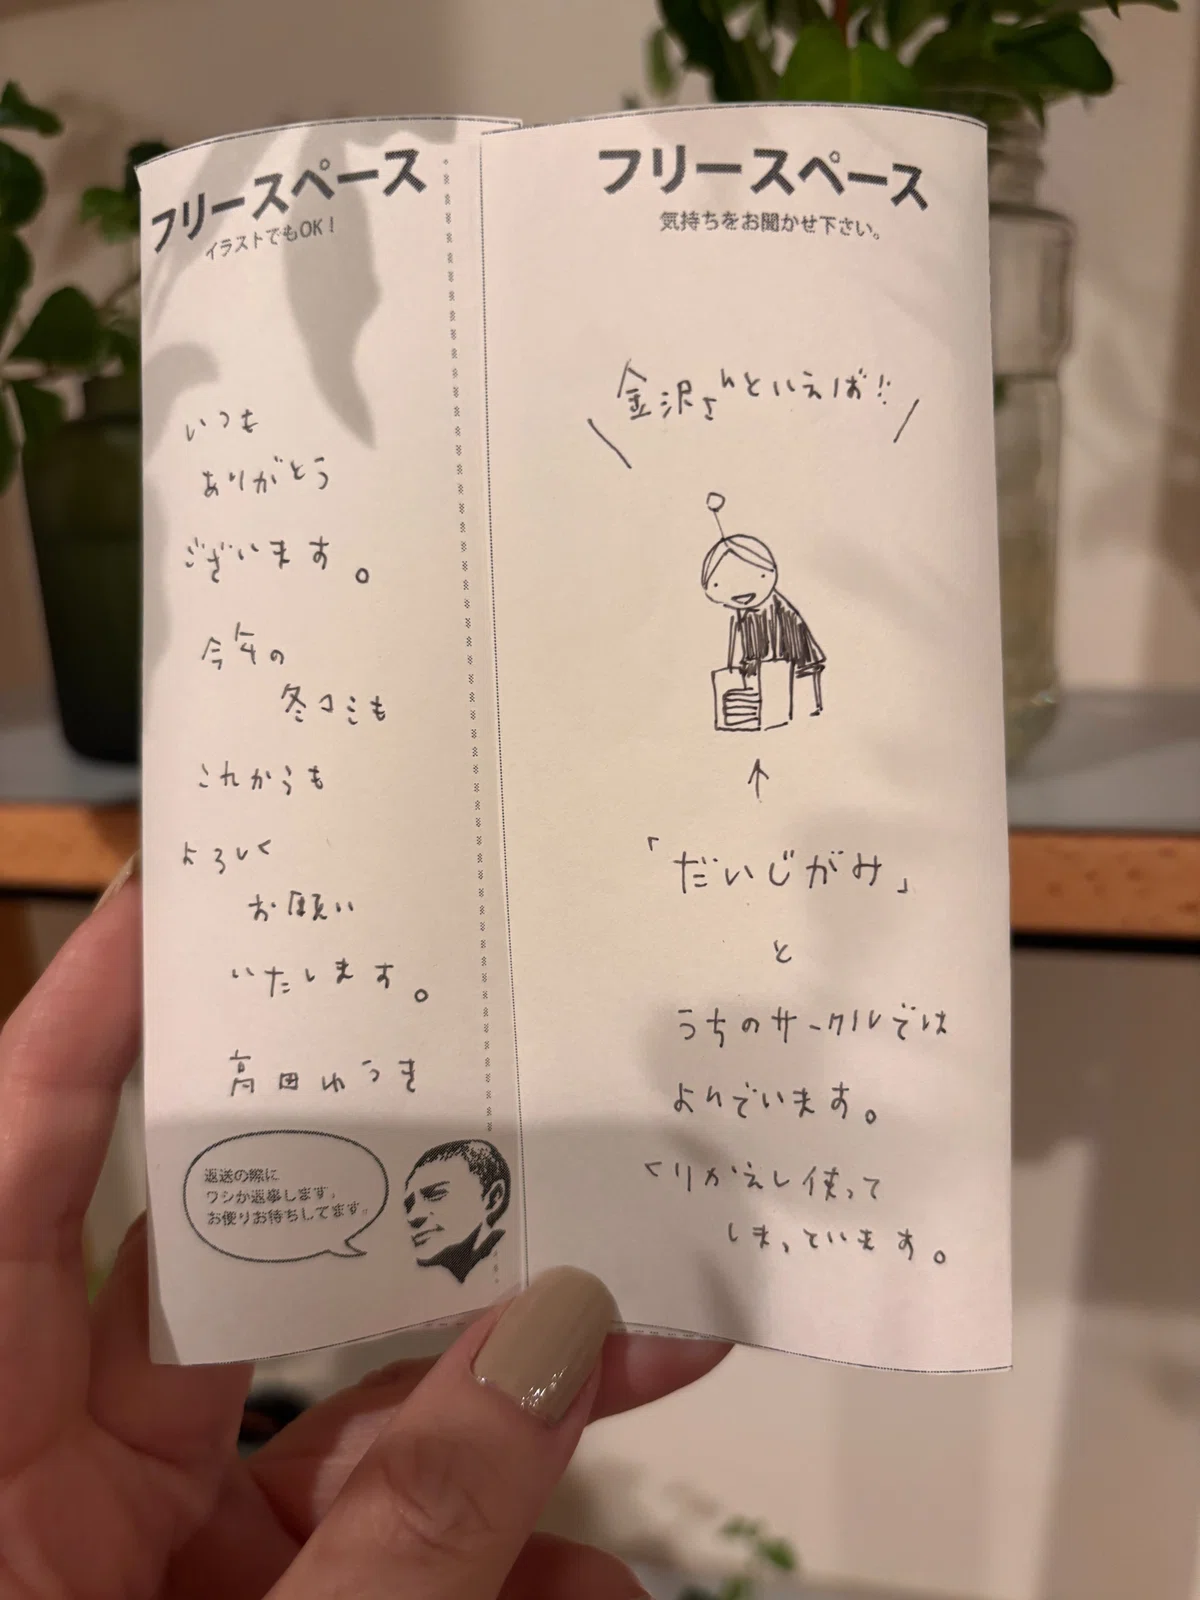 フリースペース
イラストでもOK!
いつも
ありがとう
ございます。
今年の
冬コミも
これからも
よろしく
お願い
いたします。
高田ゆうき
返送の際に
ワシか返事します。
お便りお待ちしてます。
フリースペース
気持ちをお聞かせ下さい。
金沢さんといえば!!
「だいじがみ」
と
うちのサークルでは
よんでいます。
くりかえし使って
しまっています。